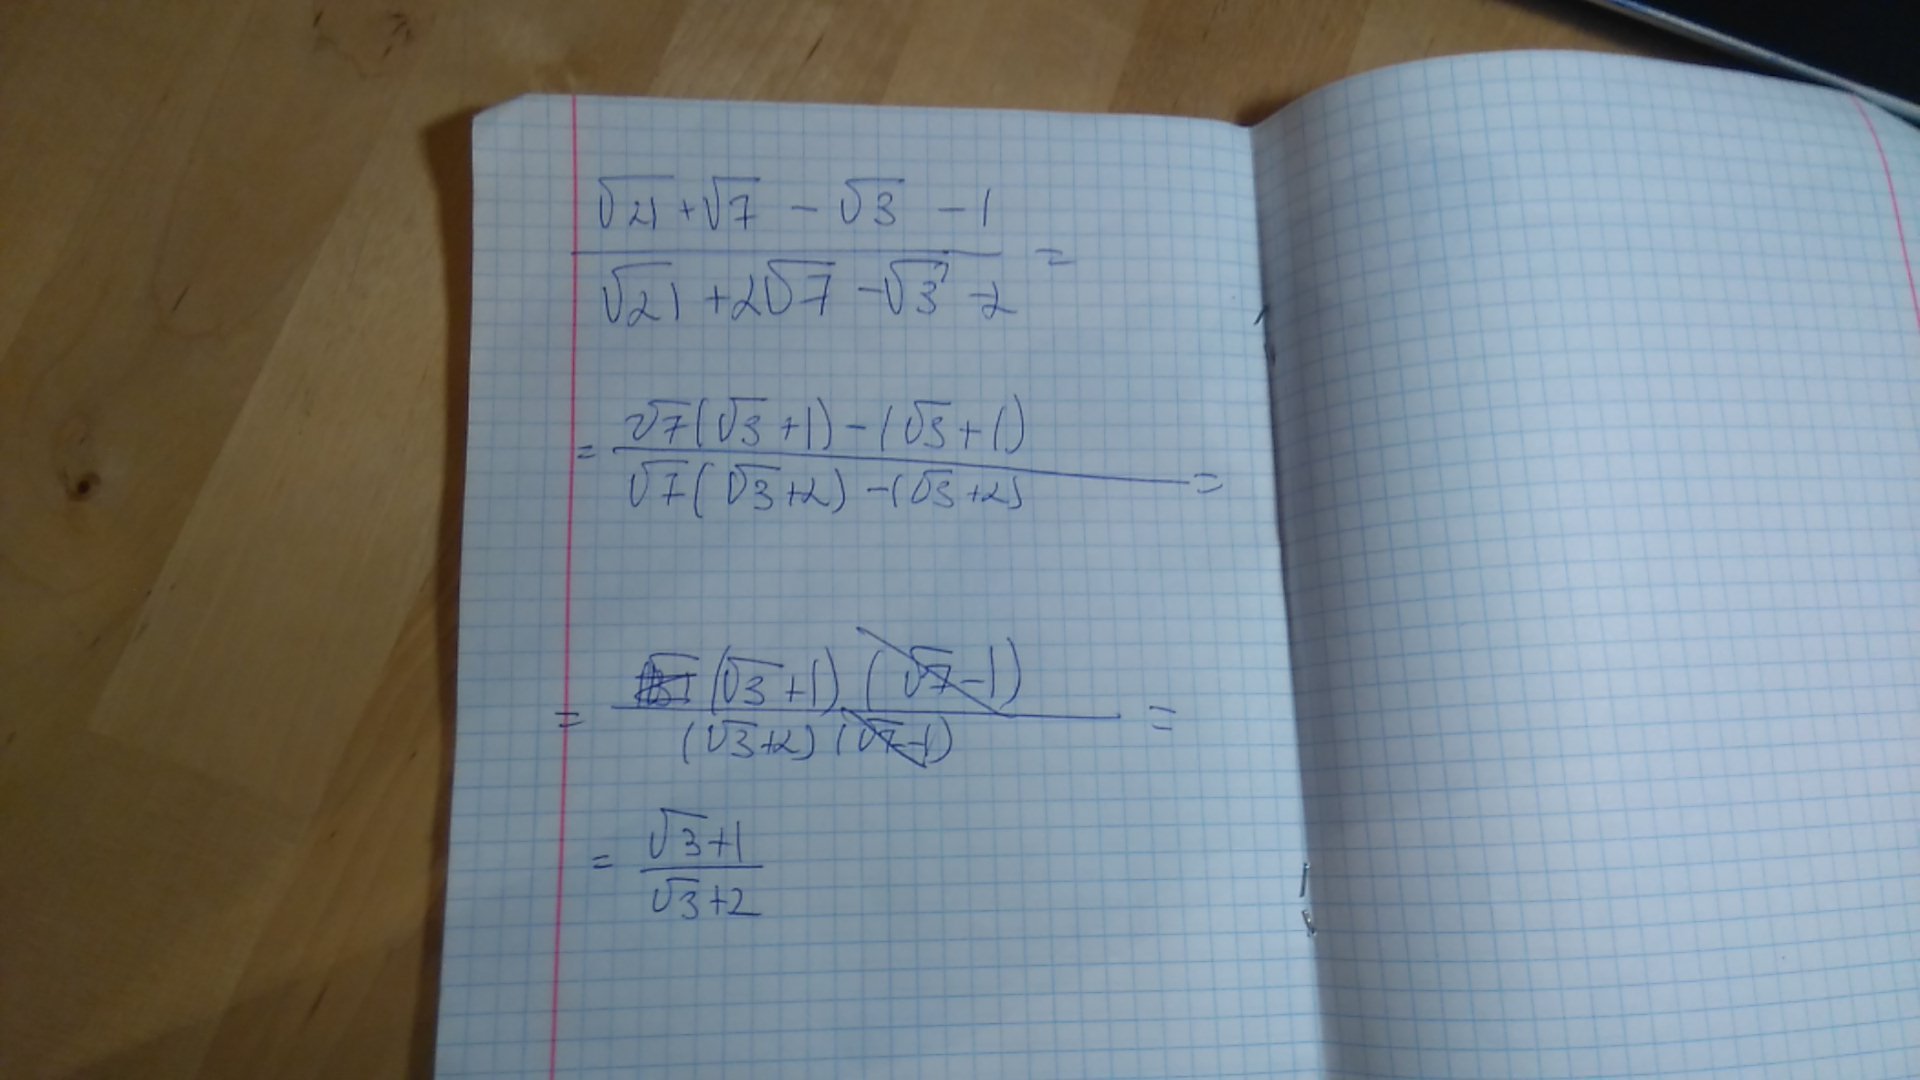 √21 + √7 - √3 - 1
√21 + 2√7 - √3 - 2 =
= √7(√3 + 1) - (√3 + 1)
√7(√3 + 2) - (√3 + 2) =
= (√3 + 1) (√7 - 1)
(√3 + 2) (√7 - 1) =
= √3 + 1
√3 + 2